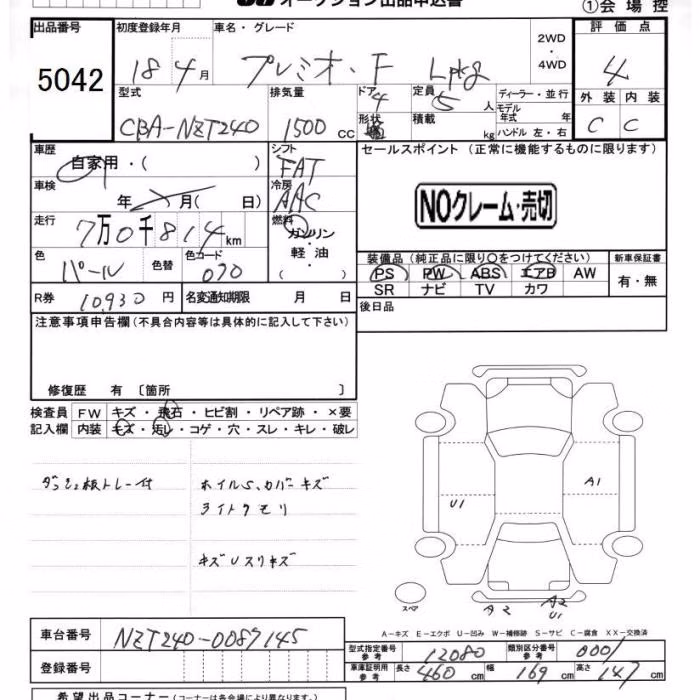 オークション出品申込書
①会場控
出品番号
5042
初度登録年月
18 4月
車名・グレード
プレミオ・F Lpkg
2WD・4WD
評価点
4
型式
CBA-NZT240
排気量
1500 cc
ドア
4
形状
定員
5 人
積載
kg
ディーラー・並行
モデル年式 年
ハンドル 左・右
外装 内装
C C
車歴
自家用・( )
シフト
FAT
車検
年 月( 日)
冷房
AAC
走行
7万0千814km
燃料
ガソリン
軽油
( )
色
パール
色替
色コード
070
R券 10930 円
名変通知期限 月 日
セールスポイント (正常に機能するものに限ります)
NOクレーム・売切
装備品(純正品に限り○をつけてください)
新車保証書
PS PW ABS エアB AW
有・無
SR ナビ TV カワ
後日品
注意事項申告欄(不具合内容等は具体的に記入して下さい)
修復歴 有 〔箇所 〕
検査員記入欄
FW キズ・飛石・ヒビ割・リペア跡・×要
内装 キズ・汚レ・コゲ・穴・スレ・キレ・破レ
ダッシュ板トレー付
ホイルS、カバーキズ
ライトクモリ
キズUスリキズ
U1
A1
スペア
A2
A2
U1
A-キズ E-エクボ U-凹み W-補修跡 S-サビ C-腐食 XX-交換済
車台番号
NZT240-0087145
登録番号
型式指定番号 参考 12080
類別区分番号 参考 0001
車庫証明用 参考 長さ 460 cm 幅 169 cm 高さ 147 cm
希望出品コーナー(コーナーは各会場により異なります)